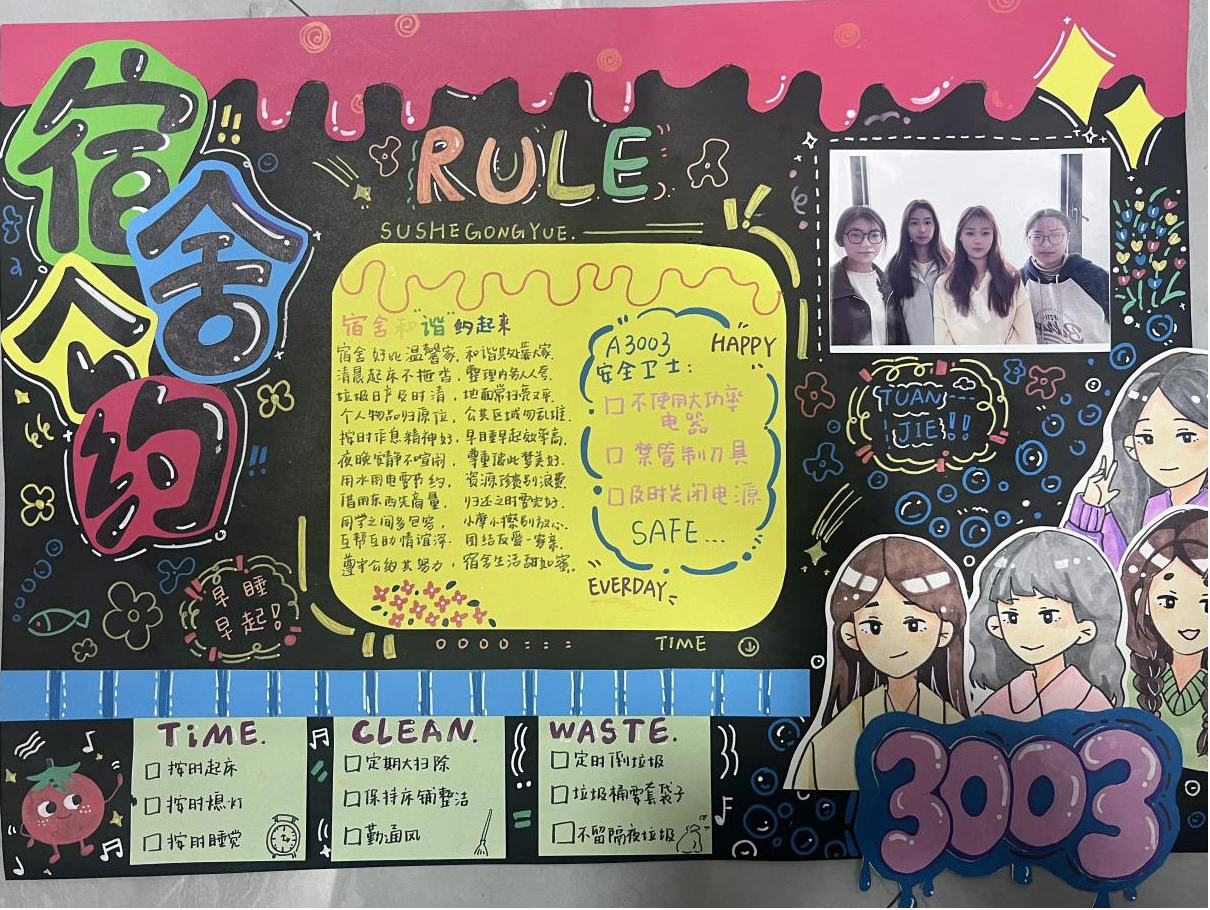 宿舍公约
RULE
SUSHEGONGYUE.
宿舍和"谐"约起来
宿舍好比温馨家,和谐共处靠大家.
清晨起床不拖沓,整理内务人人夸.
垃圾日产及时清,地面常扫亮又平.
个人物品归原位,公共区域勿乱堆.
按时作息精神好,早睡早起效率高.
夜晚安静不喧闹,尊重彼此梦美好.
用水用电要节约,资源珍贵别浪费
借用东西先商量,归还之时要完好.
同学之间多包容,小摩小擦别放心.
互帮互助情谊深,团结友爱一家亲.
遵守公约共努力,宿舍生活甜如蜜.
A3003
安全卫士:
HAPPY
□不使用大功率
电器
□禁管制刀具
□及时关闭电源
SAFE...
EVERDAY
TIME
TUAN
JIE!!
早睡
早起!
TiME.
□按时起床
□按时熄灯
□按时睡觉
CLEAN.
□定期大扫除
□保持床铺整洁
□勤通风
WASTE.
□定时倒垃圾
□垃圾桶要套袋子
□不留隔夜垃圾
3003